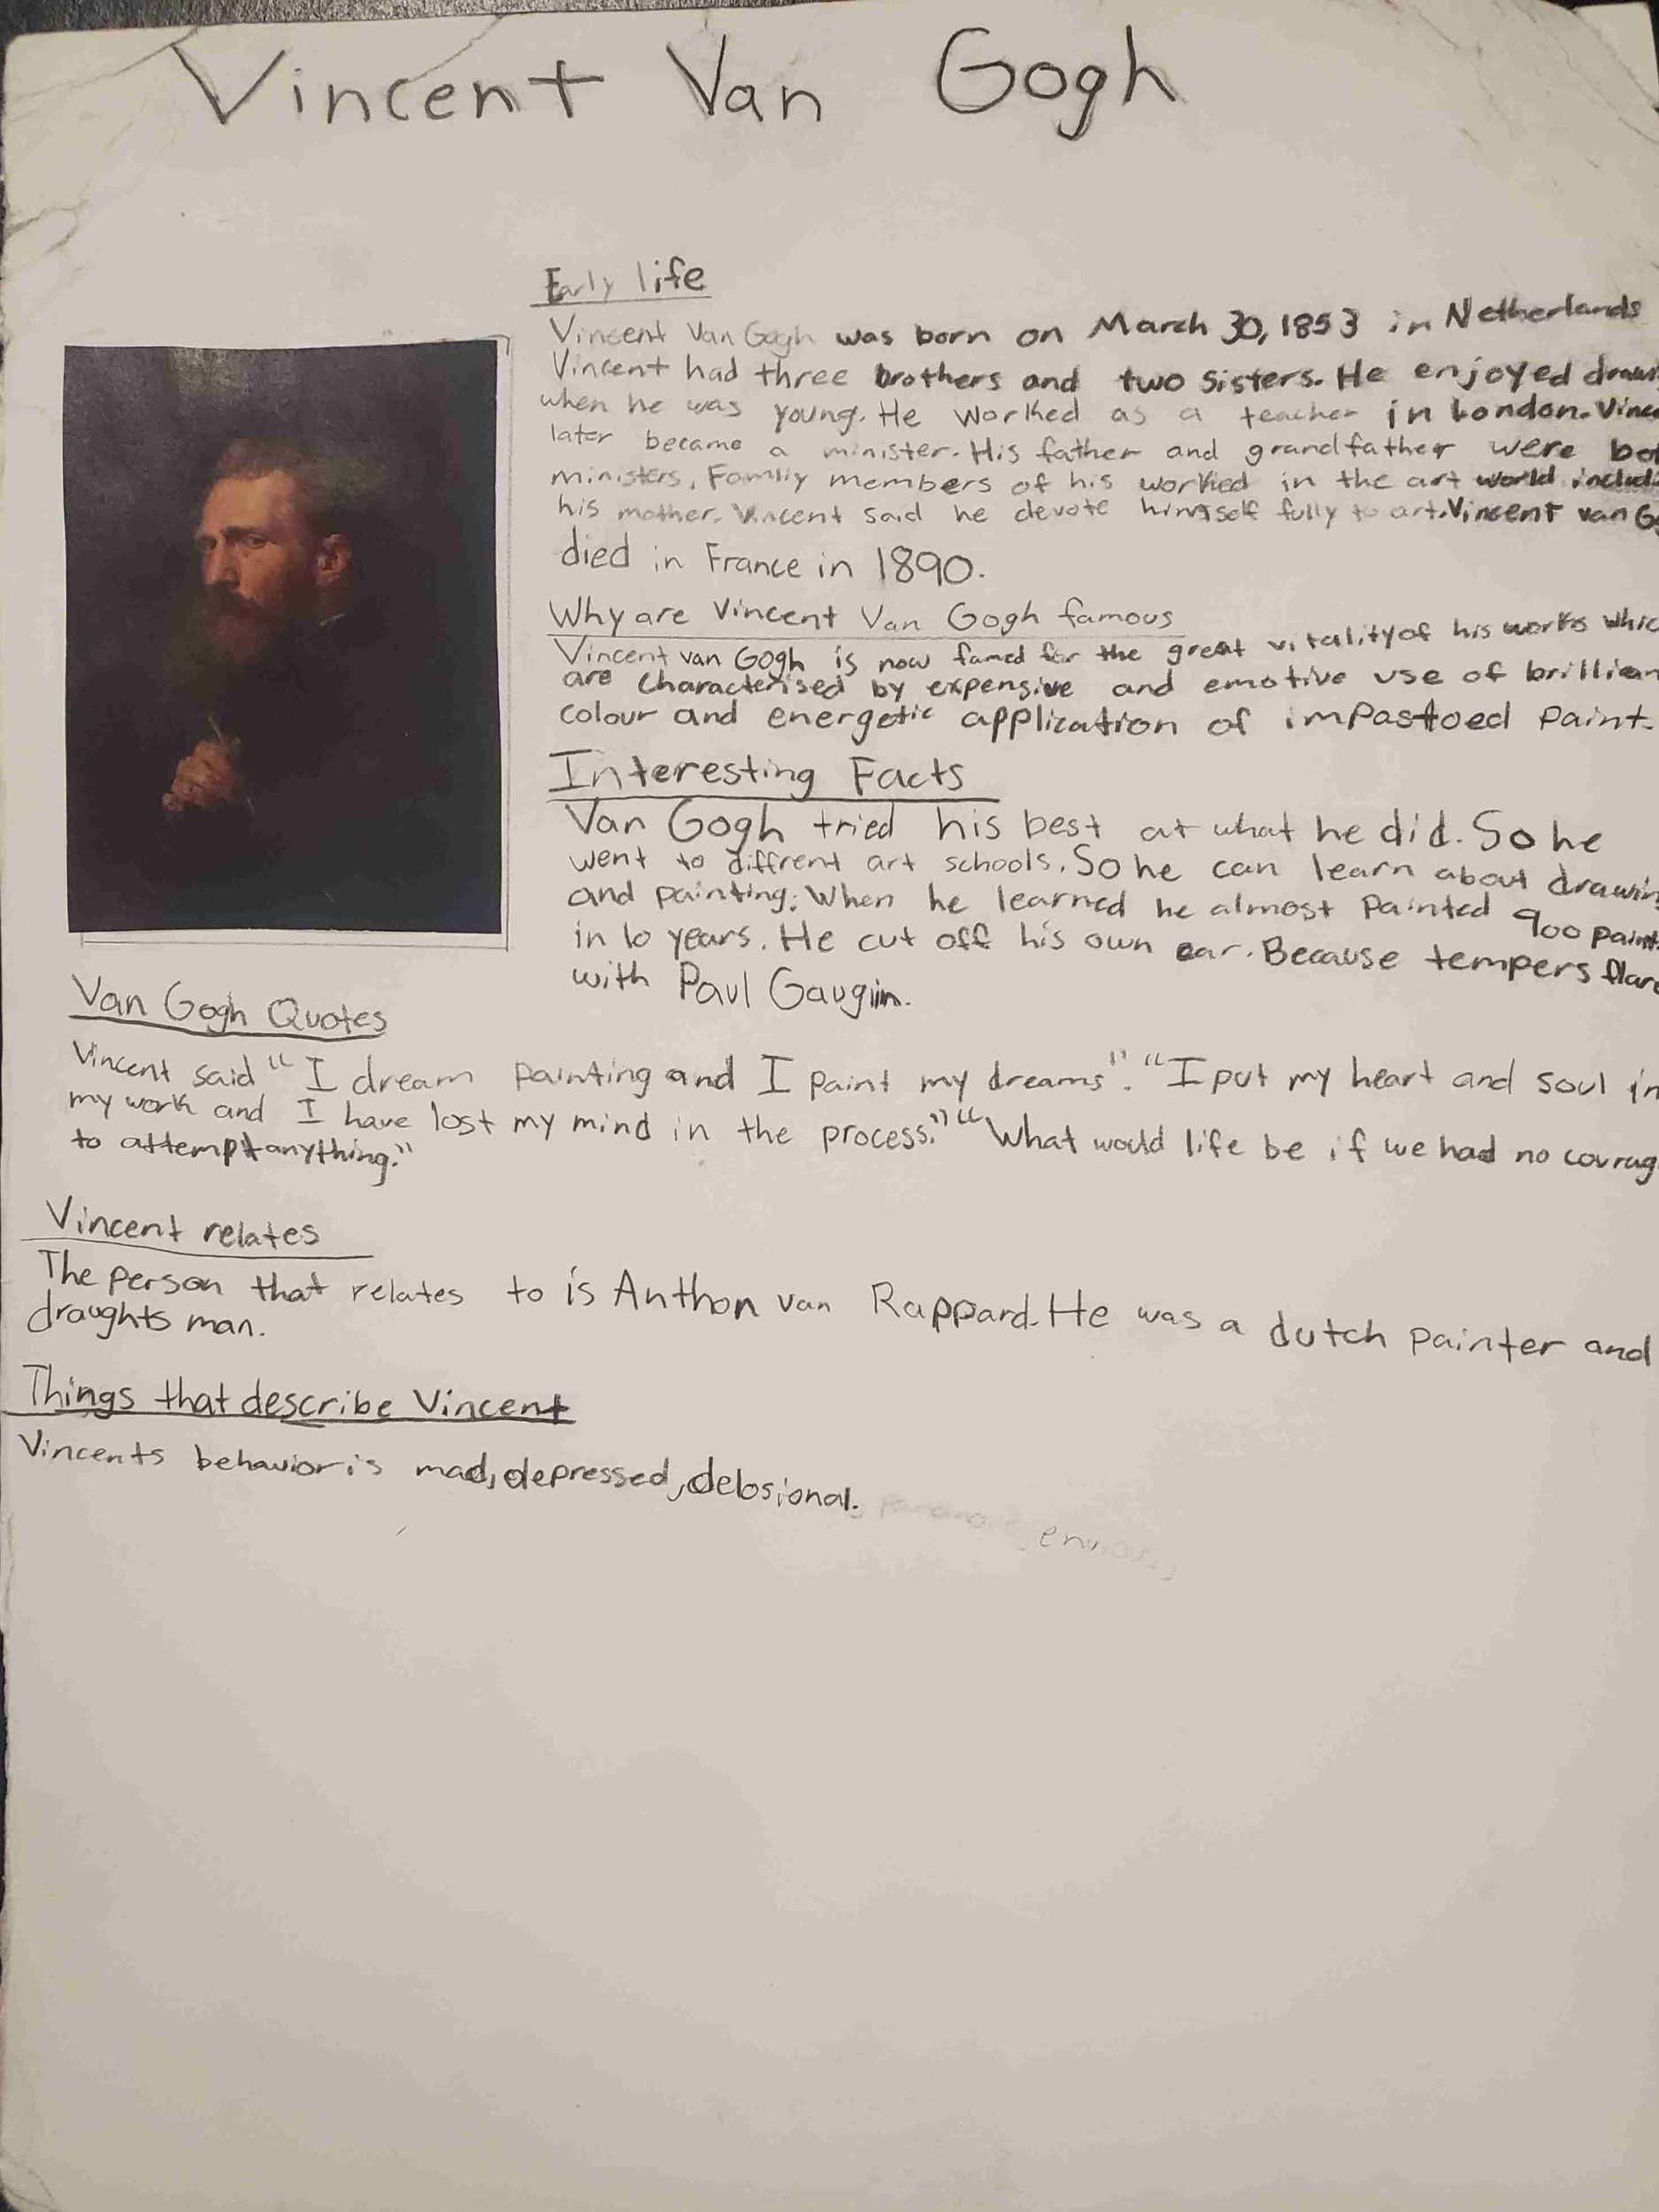 Vincent Van Gogh
Early life
Vincent Van Gogh was born on March 30, 1853 in Netherlands
Vincent had three brothers and two sisters. He enjoyed draw
when he was young. He worked as a teacher in London. Vinc
later became a minister. His father and grandfather were bo
ministers, Family members of his worked in the art world includ
his mother. Vincent said he devote himself fully to art. Vincent van G
died in France in 1890.
Why are Vincent Van Gogh famous
Vincent van Gogh is now famed for the great vitality of his works whic
are characterised by expensive and emotive use of brillian
colour and energetic application of impastoed paint.
Interesting Facts
Van Gogh tried his best at what he did. So he
went to diffrent art schools. So he can learn about drawin
and painting. When he learned he almost painted 900 paint
in 10 years. He cut off his own ear. Because tempers flar
with Paul Gaugin.
Van Gogh Quotes
Vincent said "I dream painting and I paint my dreams". "I put my heart and soul in
my work and I have lost my mind in the process." "What would life be if we had no courag
to attempt anything."
Vincent relates
The person that relates to is Anthon van Rappard. He was a dutch painter and
draughts man.
Things that describe Vincent
Vincents behavior is mad, depressed, delosional.